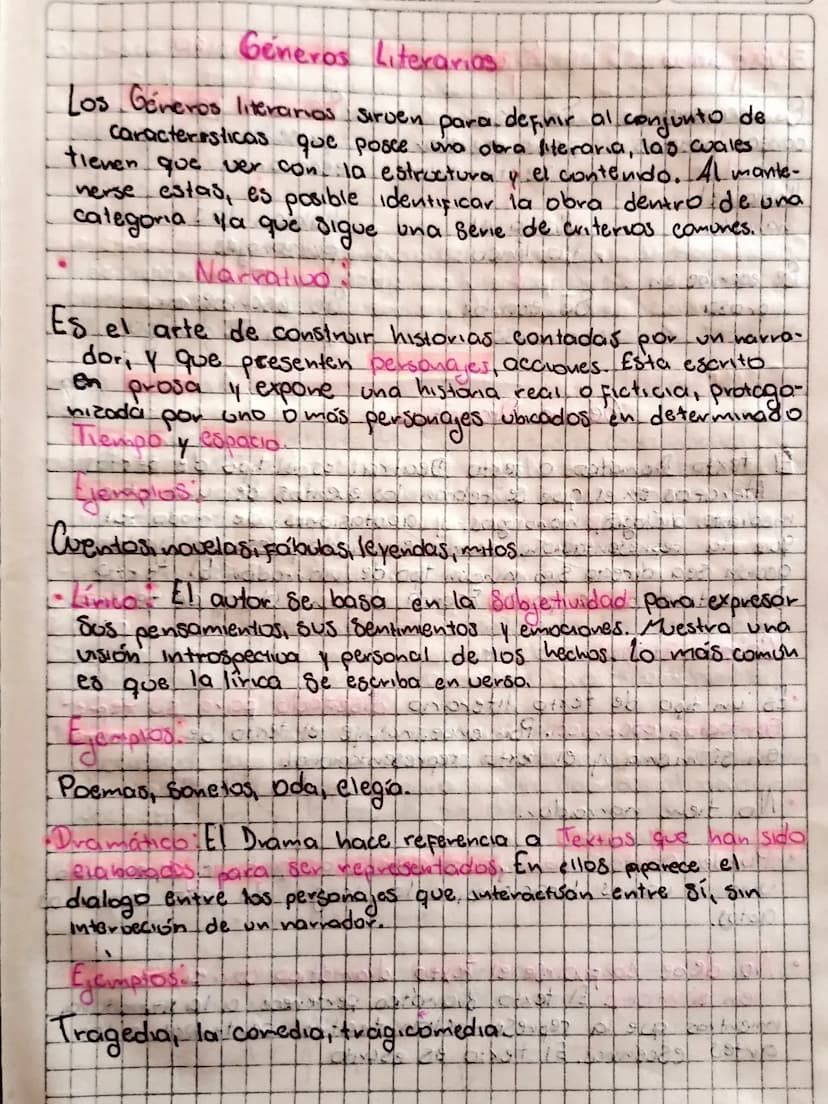 Géneros Literarios
Los Géneros literarios sirven para definir al conjunto de
características que posce una obra literaria, las cuales
tienen que ver con la estructura y el contenido. Al mante-
nerse estas, es posible identificar la obra dentro de una
categoria ya que sigue una serie de criterios comunes.
• Narrativo:
Es el arte de construir historias contadas por un narra-
dor, y que presenten personajes, acciones. Esta escrito
en prosa y expone una historia real o ficticia, protago-
nizada por uno o más personajes ubicados en determinado
Tiempo y espacio.
Ejemplos:
Cuentos, novelas, fábulas, leyendas, mitos.
• Lírico: El autor se basa en la Subjetividad para expresar
sus pensamientos, sus sentimientos y emociones. Muestra una
visión introspectiva y personal de los hechos. lo más común
es que la lírica se escriba en verso.
Ejemplos:
Poemas, sonetos, oda, elegía.
• Dramático: El Drama hace referencia a Textos que han sido
elaborados para ser representados. En ellos aparece el
dialogo entre los personajes que interactúan entre sí, sin
interbeción de un narrador.
Ejemplos:
Tragedia, la comedia, tragicomedia.